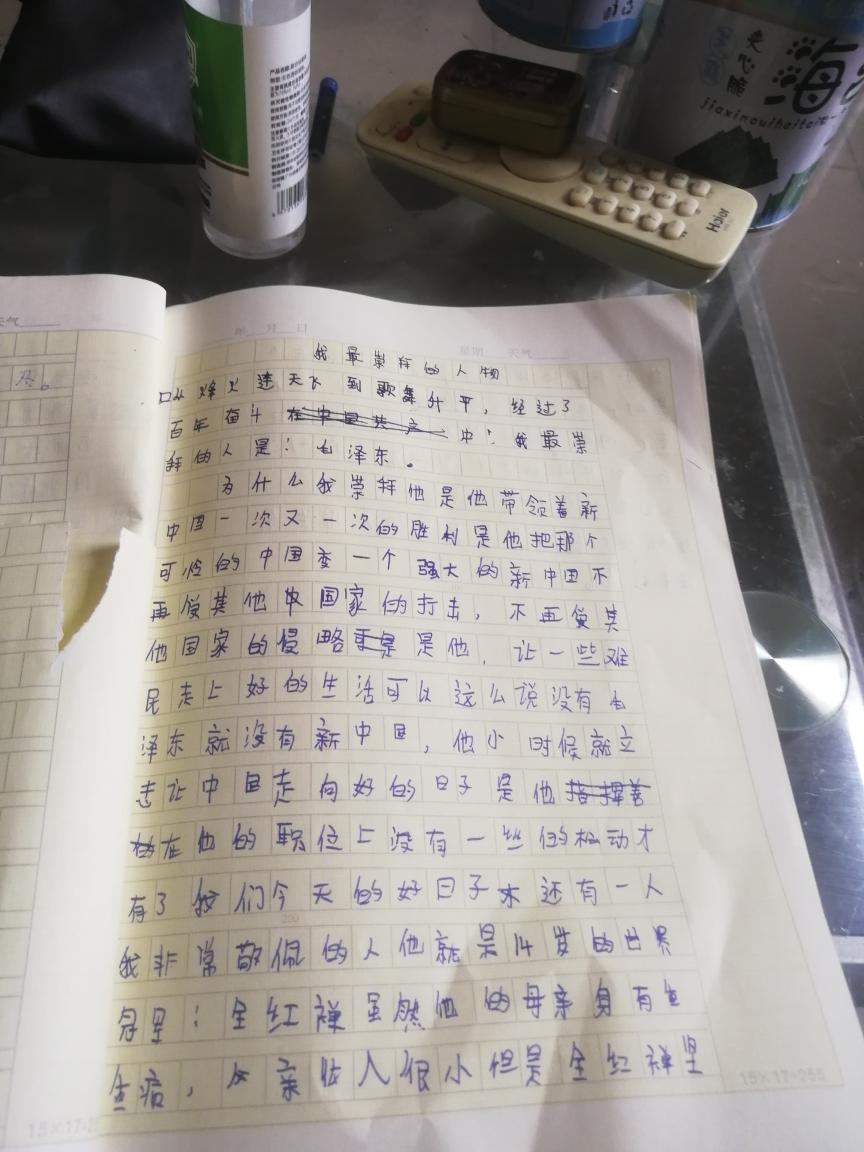 天气
年 月 日 星期 天气
我最崇拜的人物
从烽火连天 到歌舞升平，经过了
百年奋斗在中国共产中：我最崇
拜的人是：毛泽东。
为什么我崇拜他是他带领着新
中国一次又一次的胜利是他把那个
可怜的中国变一个强大的新中国不
再受其他国家的打击，不再受其
他国家的侵略更是是他，让一些难
民走上好的生活可以这么说没有毛
泽东就没有新中国，他小时候就立
志让中国走向好的日子是他指挥着
在他的职位上没有一丝的松动才
有了我们今天的好日子 还有一人
我非常敬佩的人他就是14岁的世界
冠军：全红禅虽然他的母亲身有
病，父亲收入很小但是全红禅坚
15×17=255
海
夹心脆
jiaxincuihaitai
Haier